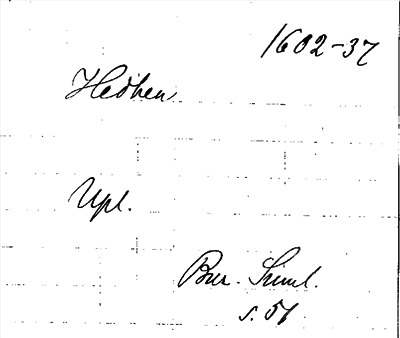 1602-37
Hedhen
Upl.
Bur. Suml.
s. 51